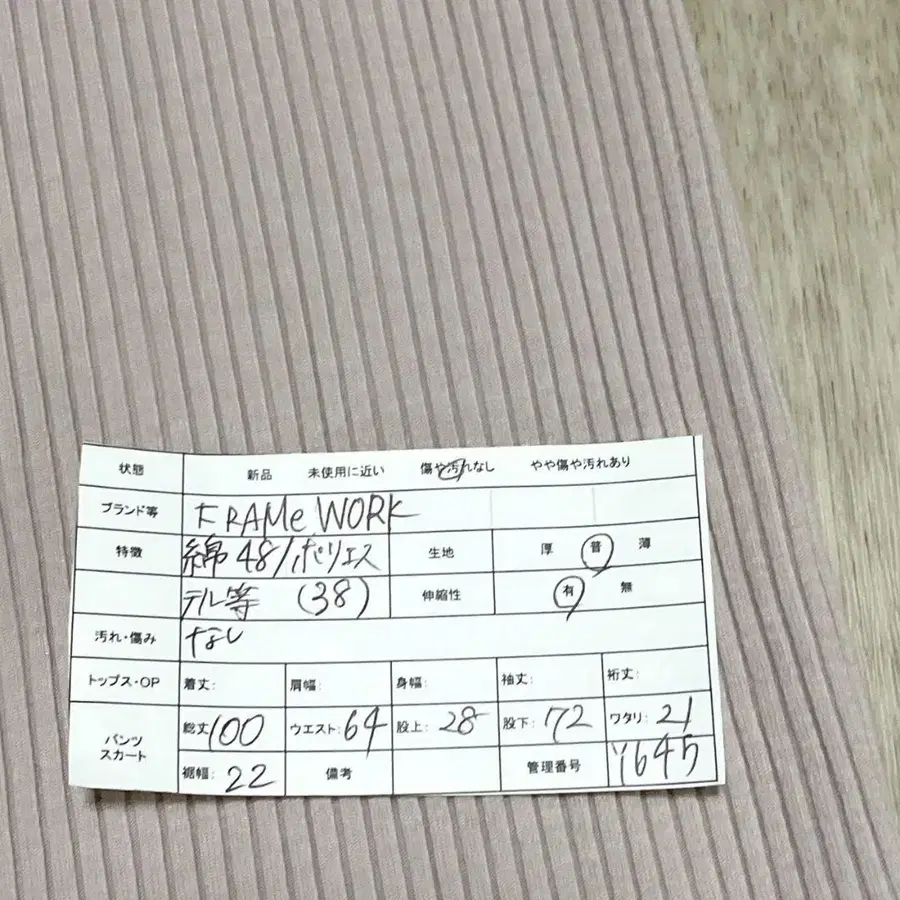 状態 新品 未使用に近い 傷や汚れなし やや傷や汚れあり
ブランド等 FRAMe WORK
特徴 綿48/ポリエス 生地 厚 普 薄
テル等 (38) 伸縮性 有 無
汚れ・傷み なし
トップス・OP 着丈: 肩幅: 身幅: 袖丈: 裄丈:
パンツ スカート 総丈100 ウエスト:64 股上:28 股下:72 ワタリ:21
裾幅:22 備考 管理番号 Y645